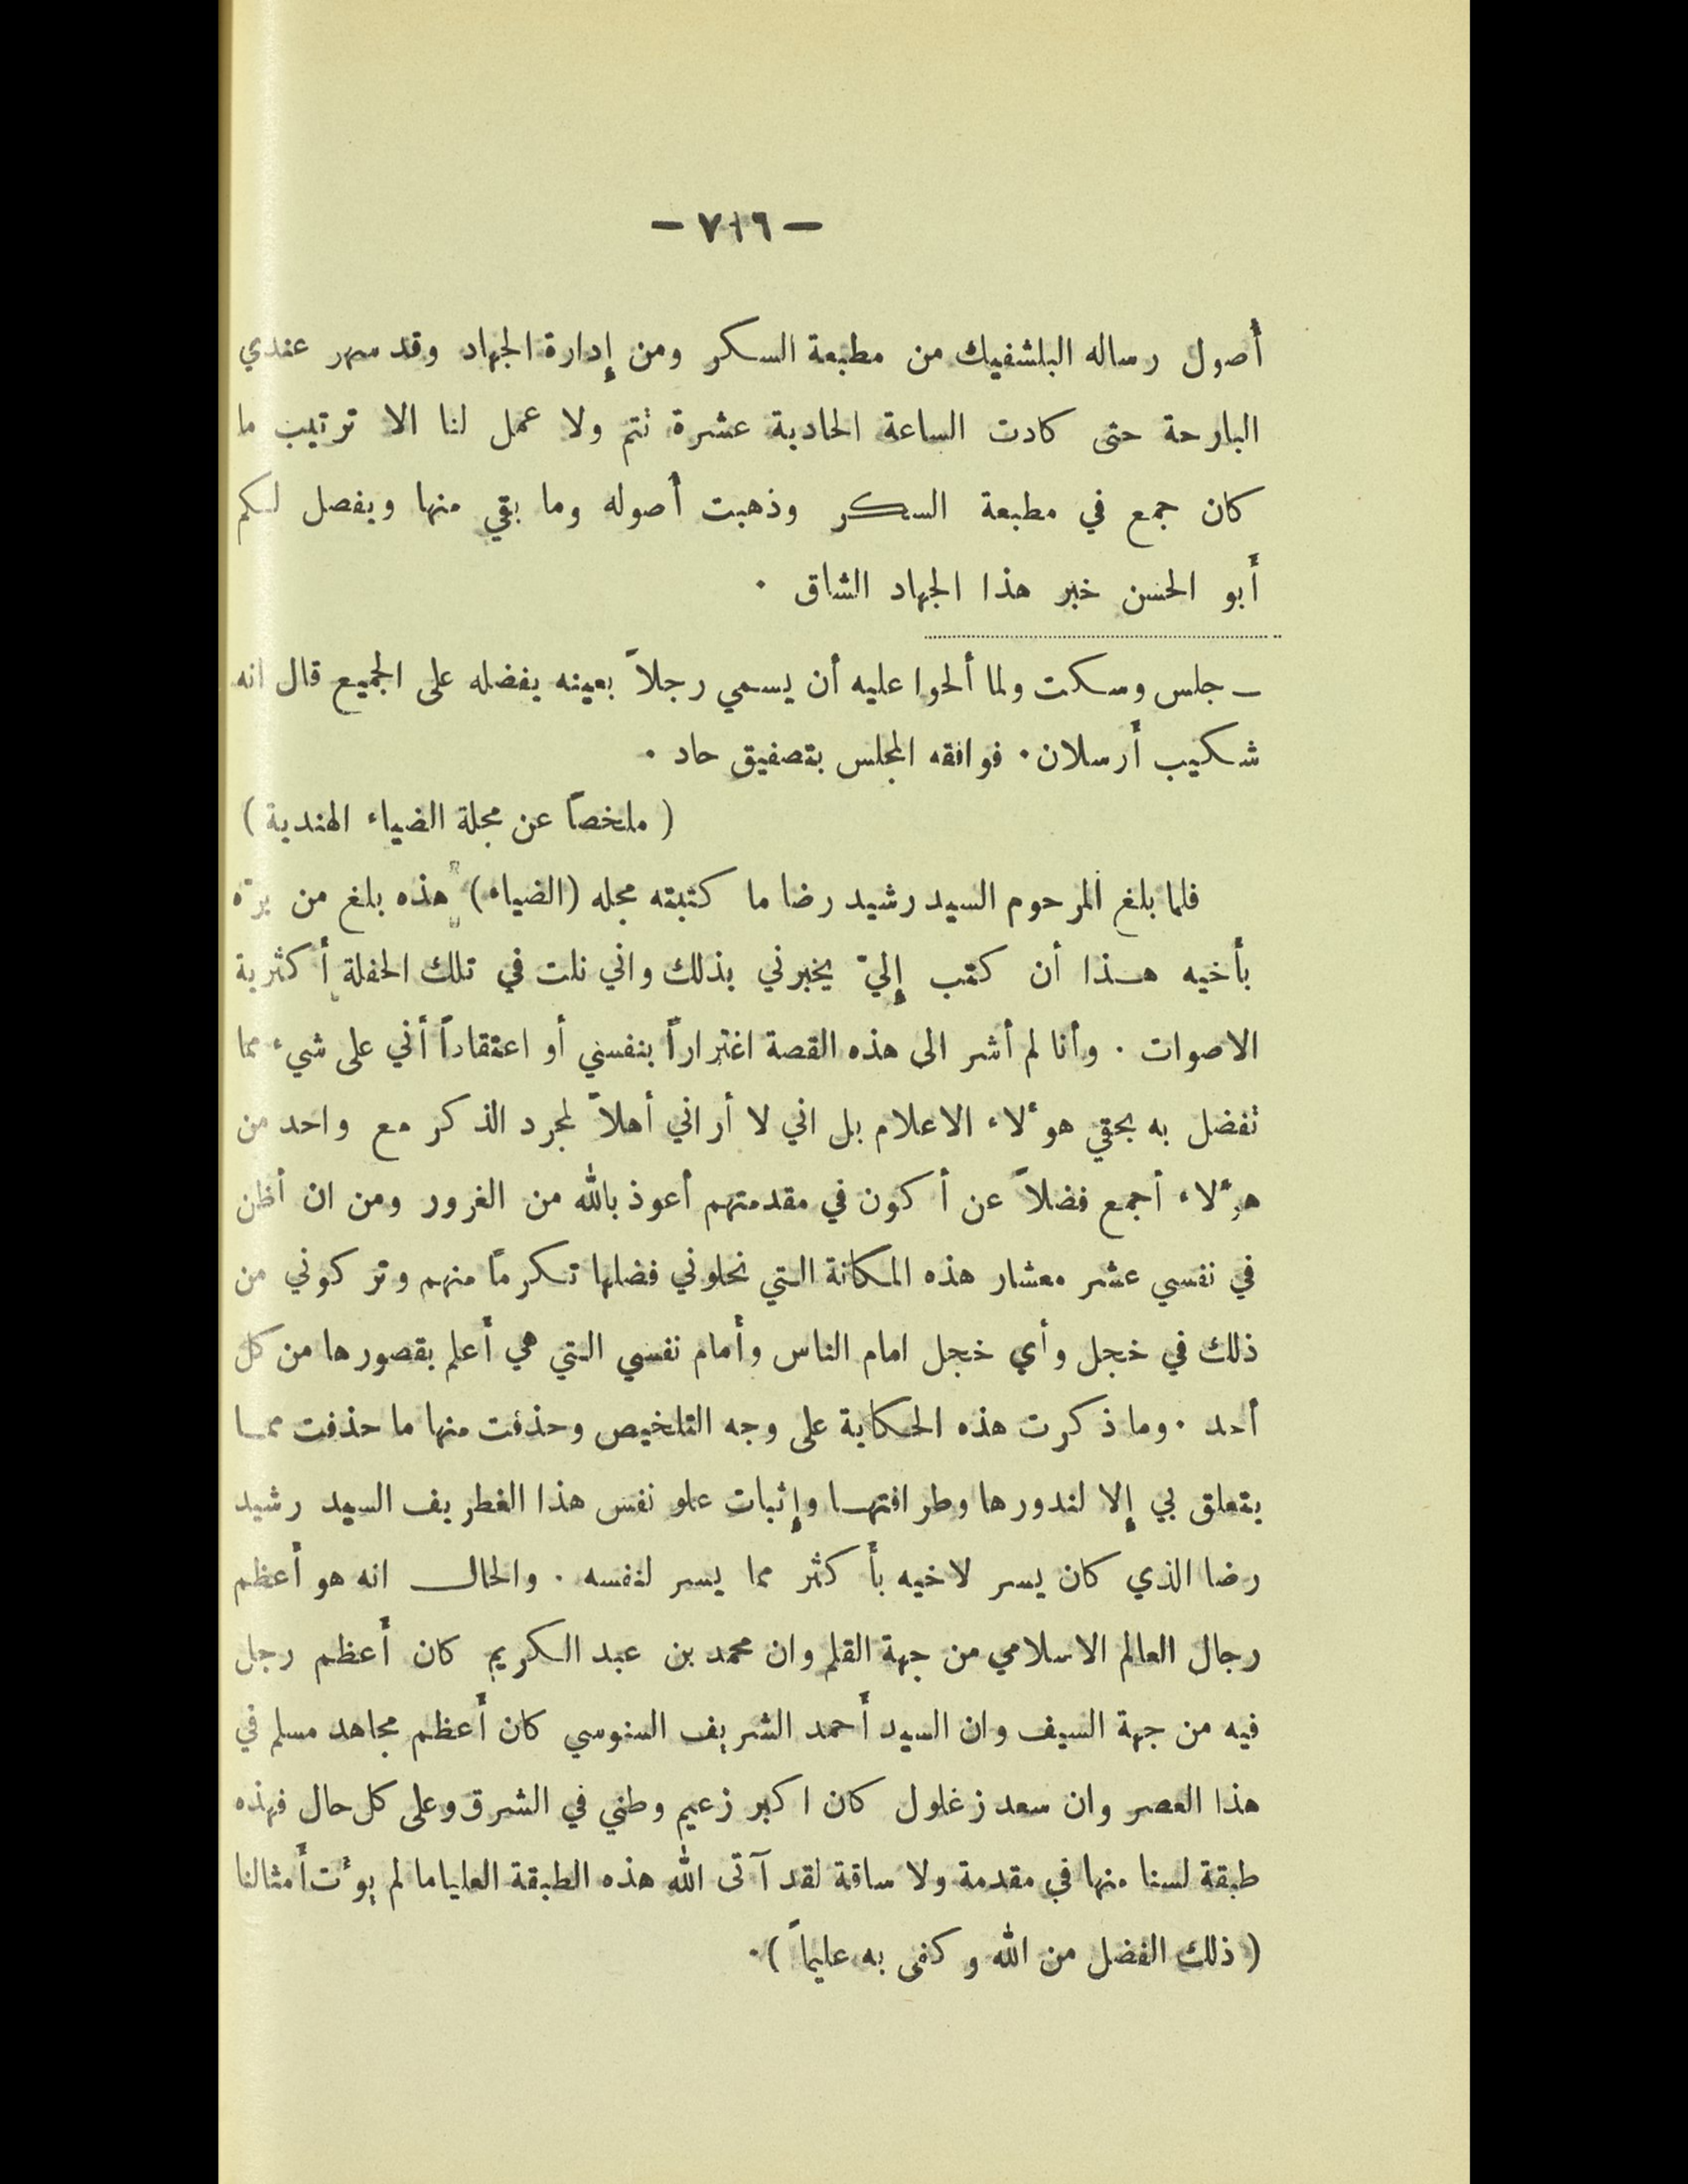 — ٧١٦ —
أصول رساله البلشفيك من مطبعة السكر ومن إدارة الجهاد وقد سهر عندي
البارحة حتى كادت الساعة الحادية عشرة تتم ولا عمل لنا الا ترتيب ما
كان جمع في مطبعة السكر وذهبت أصوله وما بقي منها ويفصل لكم
أبو الحسن خبر هذا الجهاد الشاق .
ـ جلس وسكت ولما ألحوا عليه أن يسمي رجلاً بعينه يفضله على الجميع قال انه
شكيب أرسلان . فوافقه المجلس بتصفيق حاد .
( ملخصاً عن مجلة الضياء الهندية )
فلما بلغ المرحوم السيد رشيد رضا ما كتبته مجله (الضياء) هذه بلغ من برّه
بأخيه هذا أن كتب إليّ يخبرني بذلك واني نلت في تلك الحفلة أكثرية
الاصوات . وأنا لم أشر الى هذه القصة اغتراراً بنفسي أو اعتقاداً أني على شيء مما
تفضل به بحقي هؤلاء الاعلام بل اني لا أراني أهلاً لمجرد الذكر مع واحد من
هؤلاء أجمع فضلاً عن أكون في مقدمتهم أعوذ بالله من الغرور ومن ان أظن
في نفسي عشر معشار هذه المكانة التي نحلوني فضلها تكرماً منهم وتركوني من
ذلك في خجل وأي خجل امام الناس وأمام نفسي التي هي أعلم بقصورها من كل
أحد . وما ذكرت هذه الحكاية على وجه التلخيص وحذفت منها ما حذفت مما
يتعلق بي إلا لندورها وطرافتها وإثبات علو نفس هذا الغطريف السيد رشيد
رضا الذي كان يسر لاخيه بأكثر مما يسر لنفسه . والحال انه هو أعظم
رجال العالم الاسلامي من جهة القلم وان محمد بن عبد الكريم كان أعظم رجل
فيه من جهة السيف وان السيد أحمد الشريف السنوسي كان أعظم مجاهد مسلم في
هذا العصر وان سعد زغلول كان اكبر زعيم وطني في الشرق وعلى كل حال فهذه
طبقة لسنا منها في مقدمة ولا ساقة لقد آتى الله هذه الطبقة العليا ما لم يؤت أمثالنا
( ذلك الفضل من الله وكفى به عليماً ) .